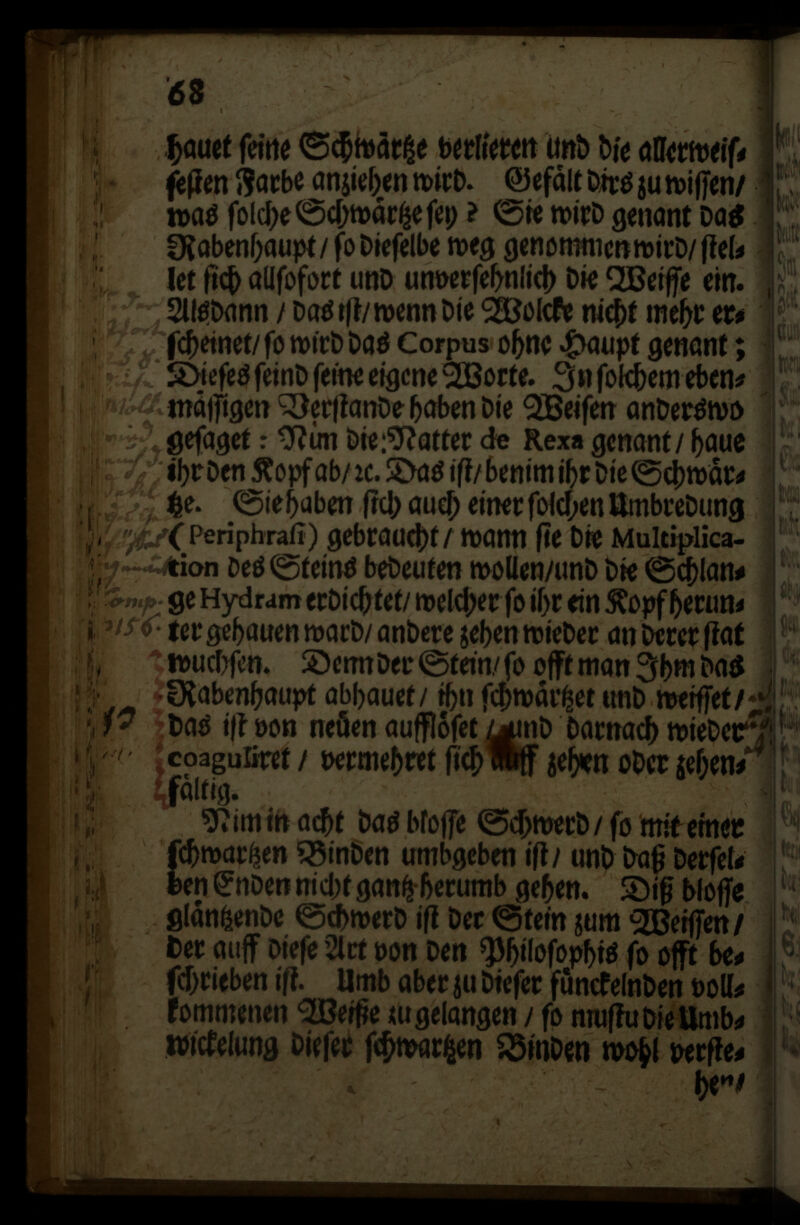 68
hauet ſeine Schwaͤrtze verlieren und die allerweiſ⸗
ſeſten Farbe anziehen wird. Gefaͤlt dirs zu wiſſen/
was ſolche Schwaͤrtze ſey? Sie wird genant das
Rabenhaupt/ ſo dieſelbe weg genommen wird/ ſtel⸗
let ſich allſofort und unverſehnlich die Weiſſe ein.
Alsdann / das iſt/ wenn die Wolcke nicht mehr er⸗
ſcheinet/ ſo wird das Corpus ohne Haupt genant;
Dieſes ſeind ſeine eigene Worte. In ſolchem eben⸗
maͤſſigen Verſtande haben die Weiſen anderswo
geſaget: Nim die Natter de Rexa genant/ haue
ihr den Kopf ab/ ꝛc. Das iſt/ benim ihr die Schwaͤr⸗
tze. Sie haben ſich auch einer ſolchen Umbredung
(Periphraſi) gebraucht/ wann ſie die Multiplica-
tion des Steins bedeuten wollen/ und die Schlan⸗
ge Hydram erdichtet/ welcher ſo ihr ein Kopf herun⸗
ter gehauen ward/ andere zehen wieder an derer ſtat
wuchſen. Denn der Stein/ ſo offt man Ihm das
Rabenhaupt abhauet/ ihn ſchwaͤrtzet und weiſſet/
das iſt von neuͤen auffloͤſet / und darnach wieder
coaguliret / vermehret ſich auff zehen oder zehen⸗
faͤltig.
Nim in acht das bloſſe Schwerd/ ſo mit einer
ſchwartzen Binden umbgeben iſt/ und daß derſel⸗
ben Enden nicht gantz herumb gehen. Diß bloſſe
glaͤntzende Schwerd iſt der Stein zum Weiſſen/
der auff dieſe Art von den Philoſophis ſo offt be⸗
ſchrieben iſt. Umb aber zu dieſer fuͤnckelnden voll⸗
kommenen Weiße zu gelangen / ſo muſtu die Umb⸗
wickelung dieſer ſchwartzen Binden wohl verſte⸗
hen/